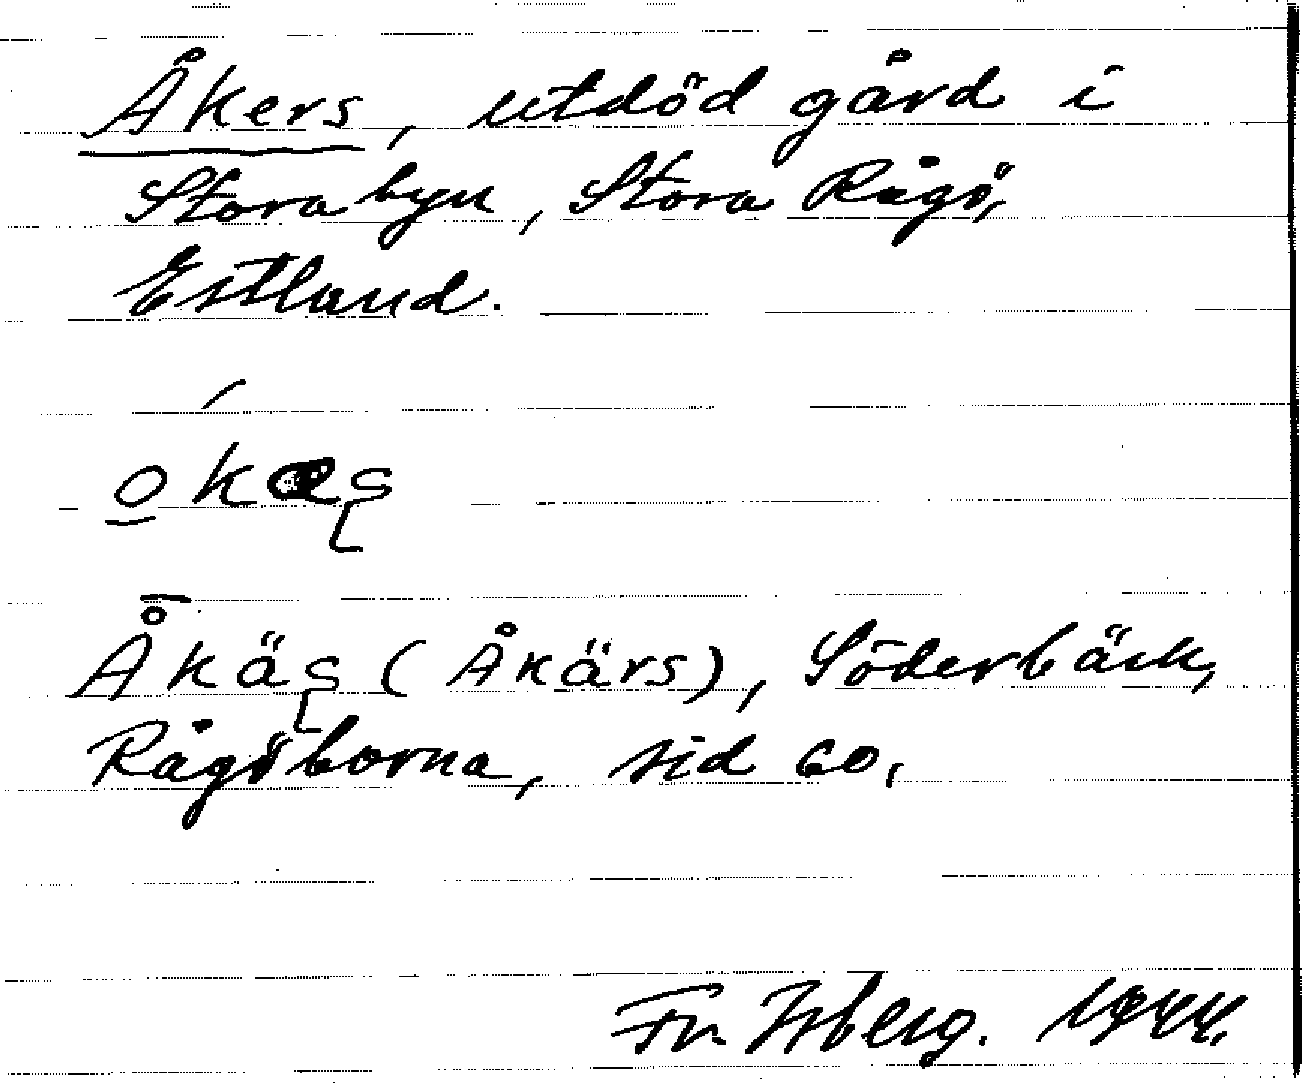 Åkers, utdöd gård i
Stora byn, Stora Rågö,
Estland.
okæʂ
Å̄käʂ (Åkärs), Söderbäck,
Rågöborna, sid 60.
Fr. Isberg. 1944.